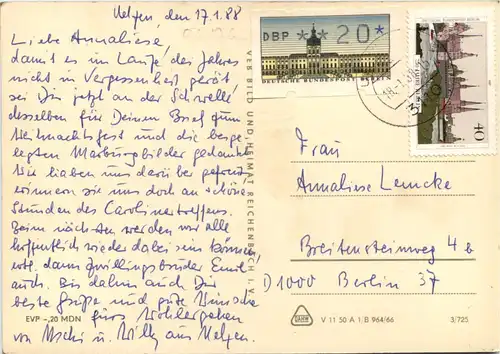 Uelzen, den 17.1.88
Liebe Annaliese,
damit es im Laufe des Jahres
nicht in Vergessenheit gerät
sei Dir jetzt an der Schwelle
desselben für Deinen Brief zum
Weihnachtsfest und die beige-
legten Marburgbilder gedankt.
Wir haben uns darüber gefreut,
erinnern sie uns doch an schöne
Stunden des Carolinertreffens.
Beim nächsten werden wir alle
hoffentlich wieder dabei sein können,
evtl. dann Zwillingsbruder Emil
auch. Bis dahin auch Dir
beste Grüße und gute Wünsche
fürs Wohlergehen
von und Willy aus Uelzen.
EVP -,20 MDN
VEB BILD UND HEIMAT REICHENBACH I. V.
DBP * * 20 *
DEUTSCHE BUNDESPOST BERLIN
40
Frau
Annaliese Lemcke
Breitensteinweg 4b
D1000 Berlin 37
V 11 50 A 1 B 964/66
3/725